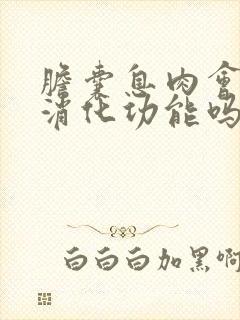 膽囊息肉會
消化功能嗎
白白白加黑啊